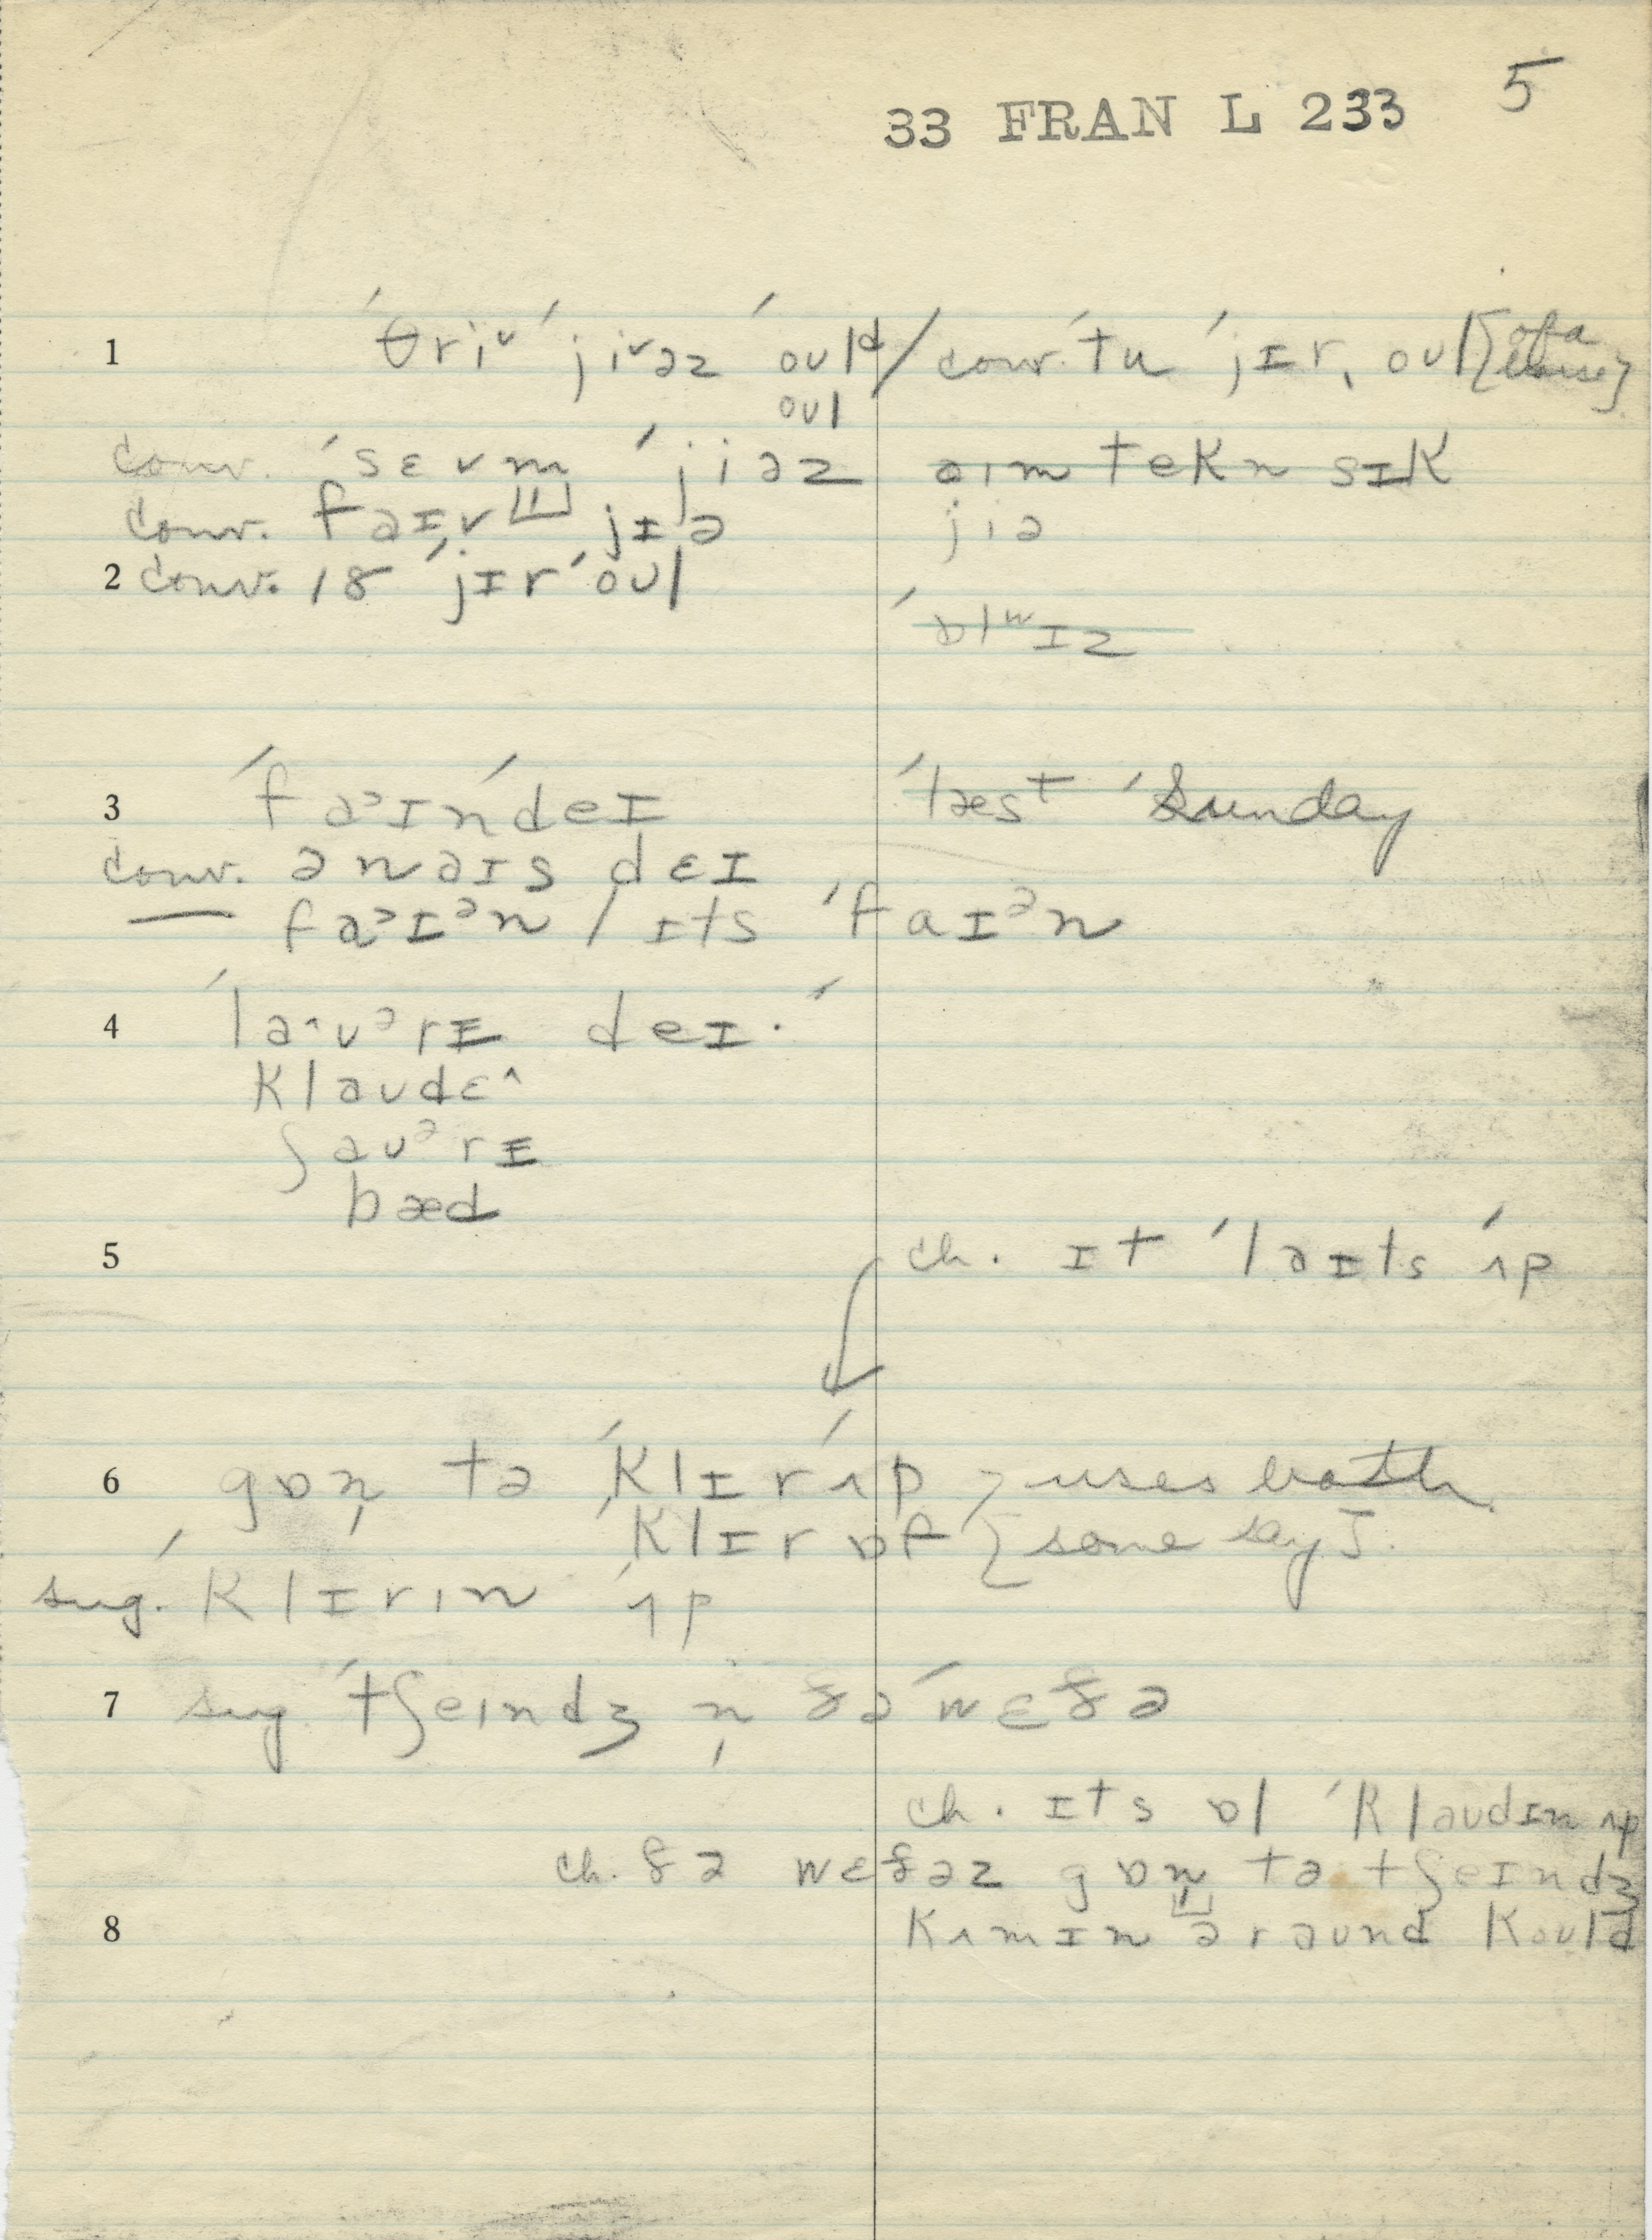 33 FRAN L 233 5
1 ˈθriᵛ ˈjiᵛəz ˈoʊlᵈ / conv. ˈtu ˈjɪr, oʊl [of a
oʊl horse]
conv. ˈsɛvm ˈjiəz aɪm tekn sɪk
conv. faɪv jɪə jiə
2 conv. 18 ˈjɪrˈoʊl
ˈɒlʷɪz
3 ˈfaᵊɪnˈdeɪ ˈlæst ˈSunday
conv. ə naɪs dɛɪ
— faᵊɪᵊn / ɪts ˈfaɪᵊn
4 ˈlaʊᵊrɪ deɪ·
klaʊdɛ^
ʃaʊᵊrɪ
bæd
5 ch. ɪt ˈlaɪts ˈʌp
6 gɒn̩ tə ˈklɪrˈʌp } uses both
ˈklɪr ɒf } [some say].
sug. ˈklɪrɪn ˈʌp
7 sug ˈtʃeɪndʒ n̩ ðə ˈwɛðə
ch. ɪts ɒl ˈklaʊdɪn ʌp
ch. ðə wɛðəz gɒn̩ tə tʃeɪndʒ
8 kʌmɪn əraʊnd koʊld